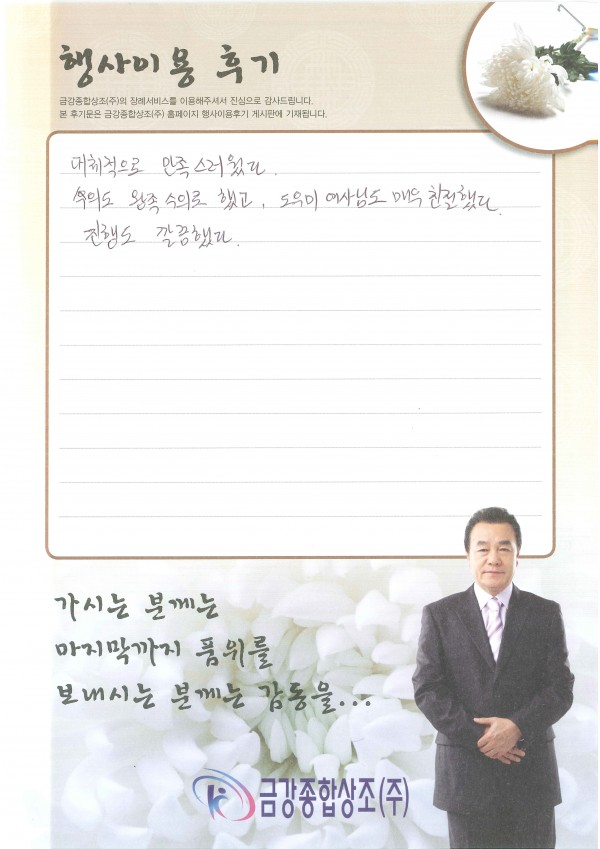 행사이용 후기
금강종합상조(주)의 장례서비스를 이용해주셔서 진심으로 감사드립니다.
본 후기문은 금강종합상조(주) 홈페이지 행사이용후기 게시판에 기재됩니다.
대체적으로 만족스러웠다.
수의도 완족 수의로 했고, 도우미 여사님도 매우 친절했다.
진행도 깔끔했다.
가시는 분께는
마지막까지 품위를
보내시는 분께는 감동을...
금강종합상조(주)